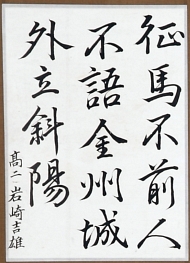 征馬不前人
不語金州城
外立斜陽
高二 岩崎吉雄